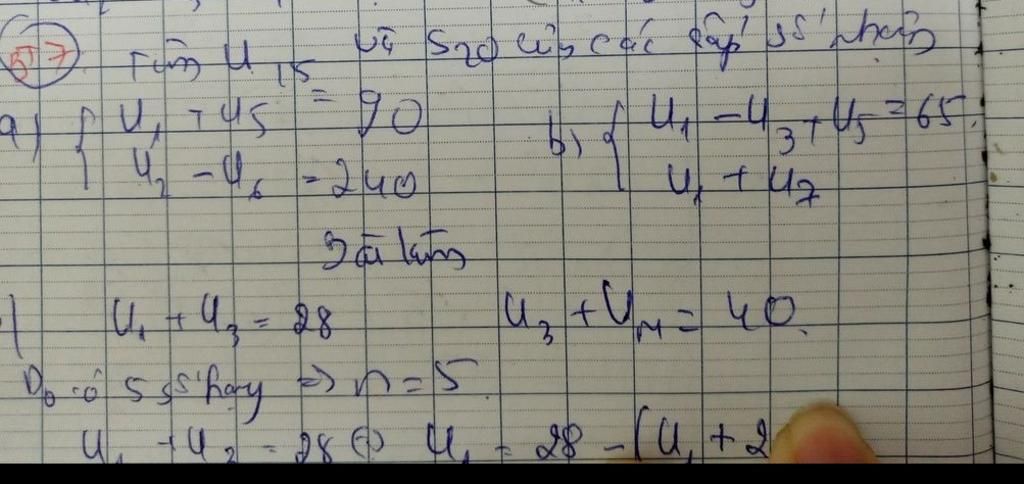 57 Tìm U₁₅ và S20 của các cấp số nhân
a) { U₁ + U5 = 90
U₂ - U₆ = 240
b) { U₁ - U₃ + U₅ = 65
U₁ + U₇
Bài làm
U₁ + U₃ = 28 U₃ + Uₙ = 40.
Do có 5 số hạng => n = 5
U₁ + U₂ = 28 (=) U₁ = 28 - (U₁ + 2